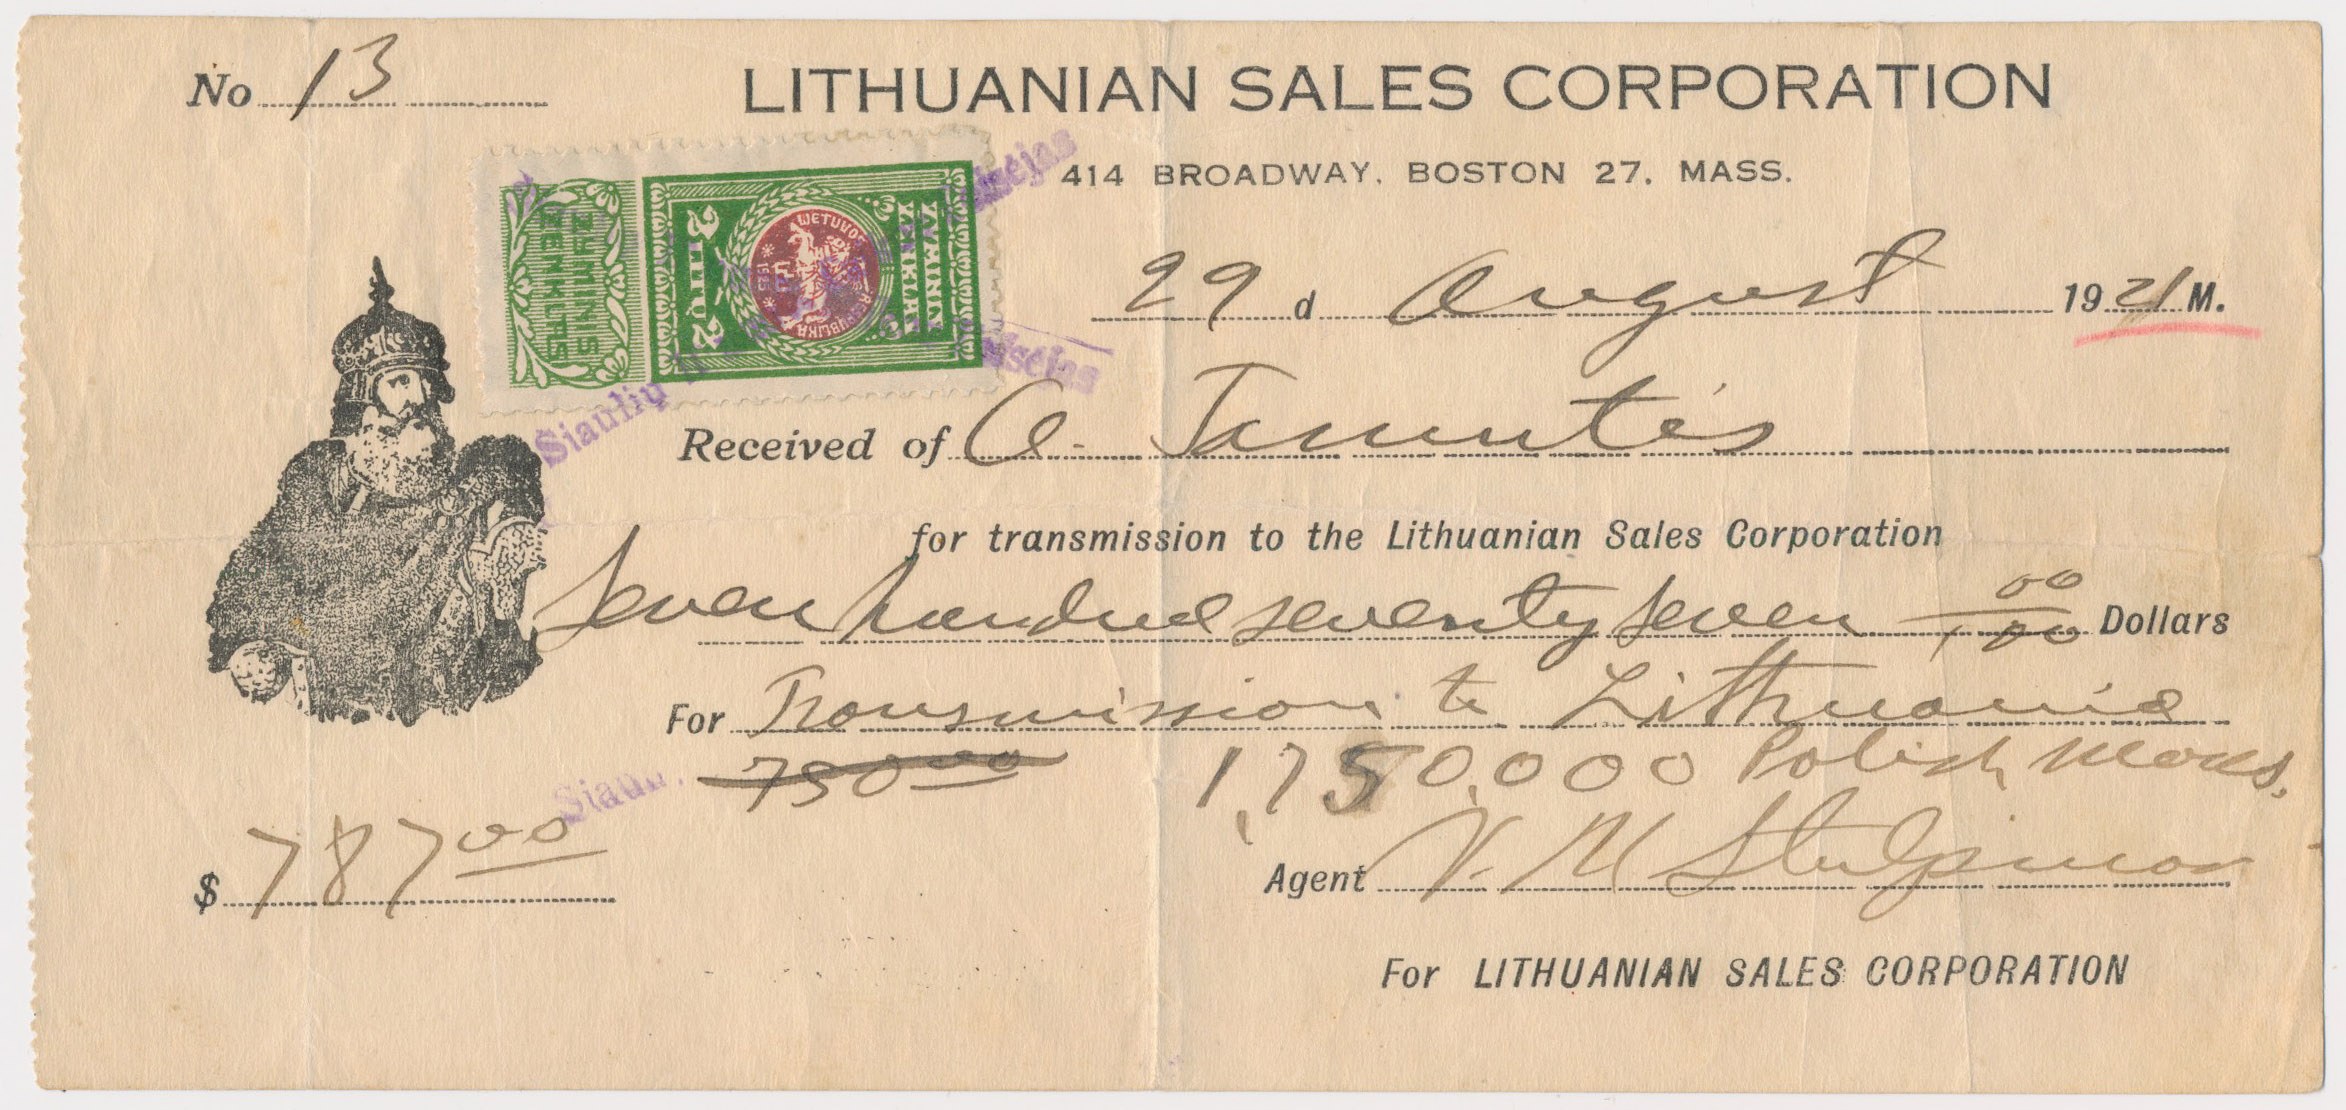 No 13
LITHUANIAN SALES CORPORATION
414 BROADWAY. BOSTON 27. MASS.
ŽYMINIS
ŽENKLAS
2 LITU 2
LIETUVOS RESPUBLIKA
29 d August 1921 M.
Šiaulių
Received of A.
for transmission to the Lithuanian Sales Corporation
Seven hundred seventy seven 00/100 Dollars
For Transmission to Lithuania
750 00 1,750,000 Polish Marks.
Šiaul
$ 787 00
Agent V. M. Stulpinas
For LITHUANIAN SALES CORPORATION